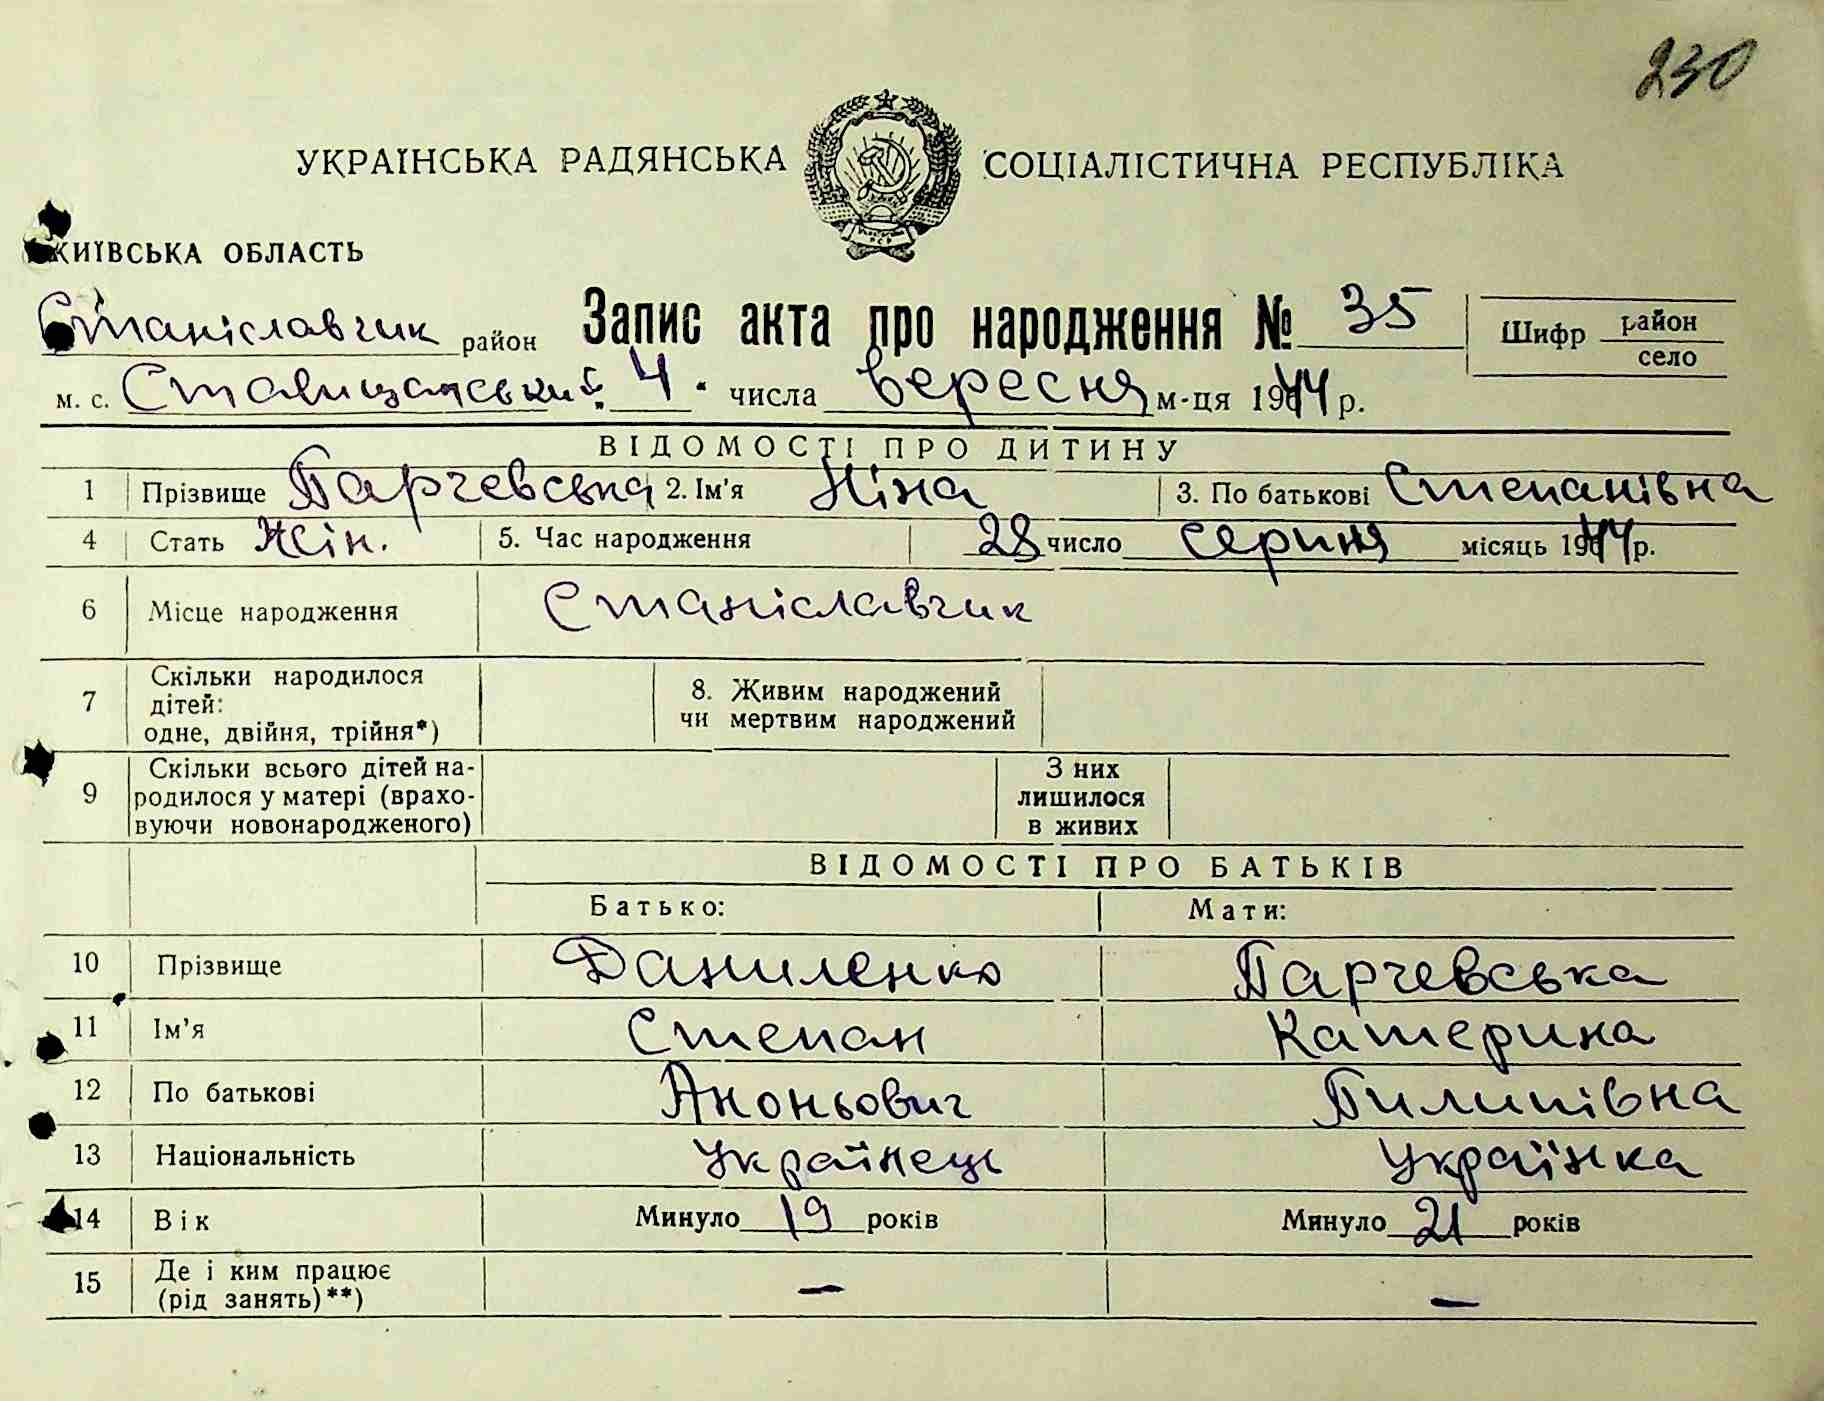 230
УКРАЇНСЬКА РАДЯНСЬКА СОЦІАЛІСТИЧНА РЕСПУБЛІКА
КИЇВСЬКА ОБЛАСТЬ
Станіславчик район Запис акта про народження № 35 Шифр район село
м. с. Ставищанський „4" числа вересня м-ця 1944 р.
ВІДОМОСТІ ПРО ДИТИНУ
1 Прізвище Парчевська 2. Ім'я Ніна 3. По батькові Степанівна
4 Стать Жін. 5. Час народження 28 число серпня місяць 1944 р.
6 Місце народження Станіславчик
7 Скільки народилося дітей: одне, двійня, трійня*) 8. Живим народжений чи мертвим народжений
9 Скільки всього дітей народилося у матері (враховуючи новонародженого) З них лишилося в живих
ВІДОМОСТІ ПРО БАТЬКІВ
Батько: Мати:
10 Прізвище Даниленко Парчевська
11 Ім'я Степан Катерина
12 По батькові Аноньович Пилипівна
13 Національність Українець Українка
14 Вік Минуло 19 років Минуло 21 років
15 Де і ким працює (рід занять)**) — —